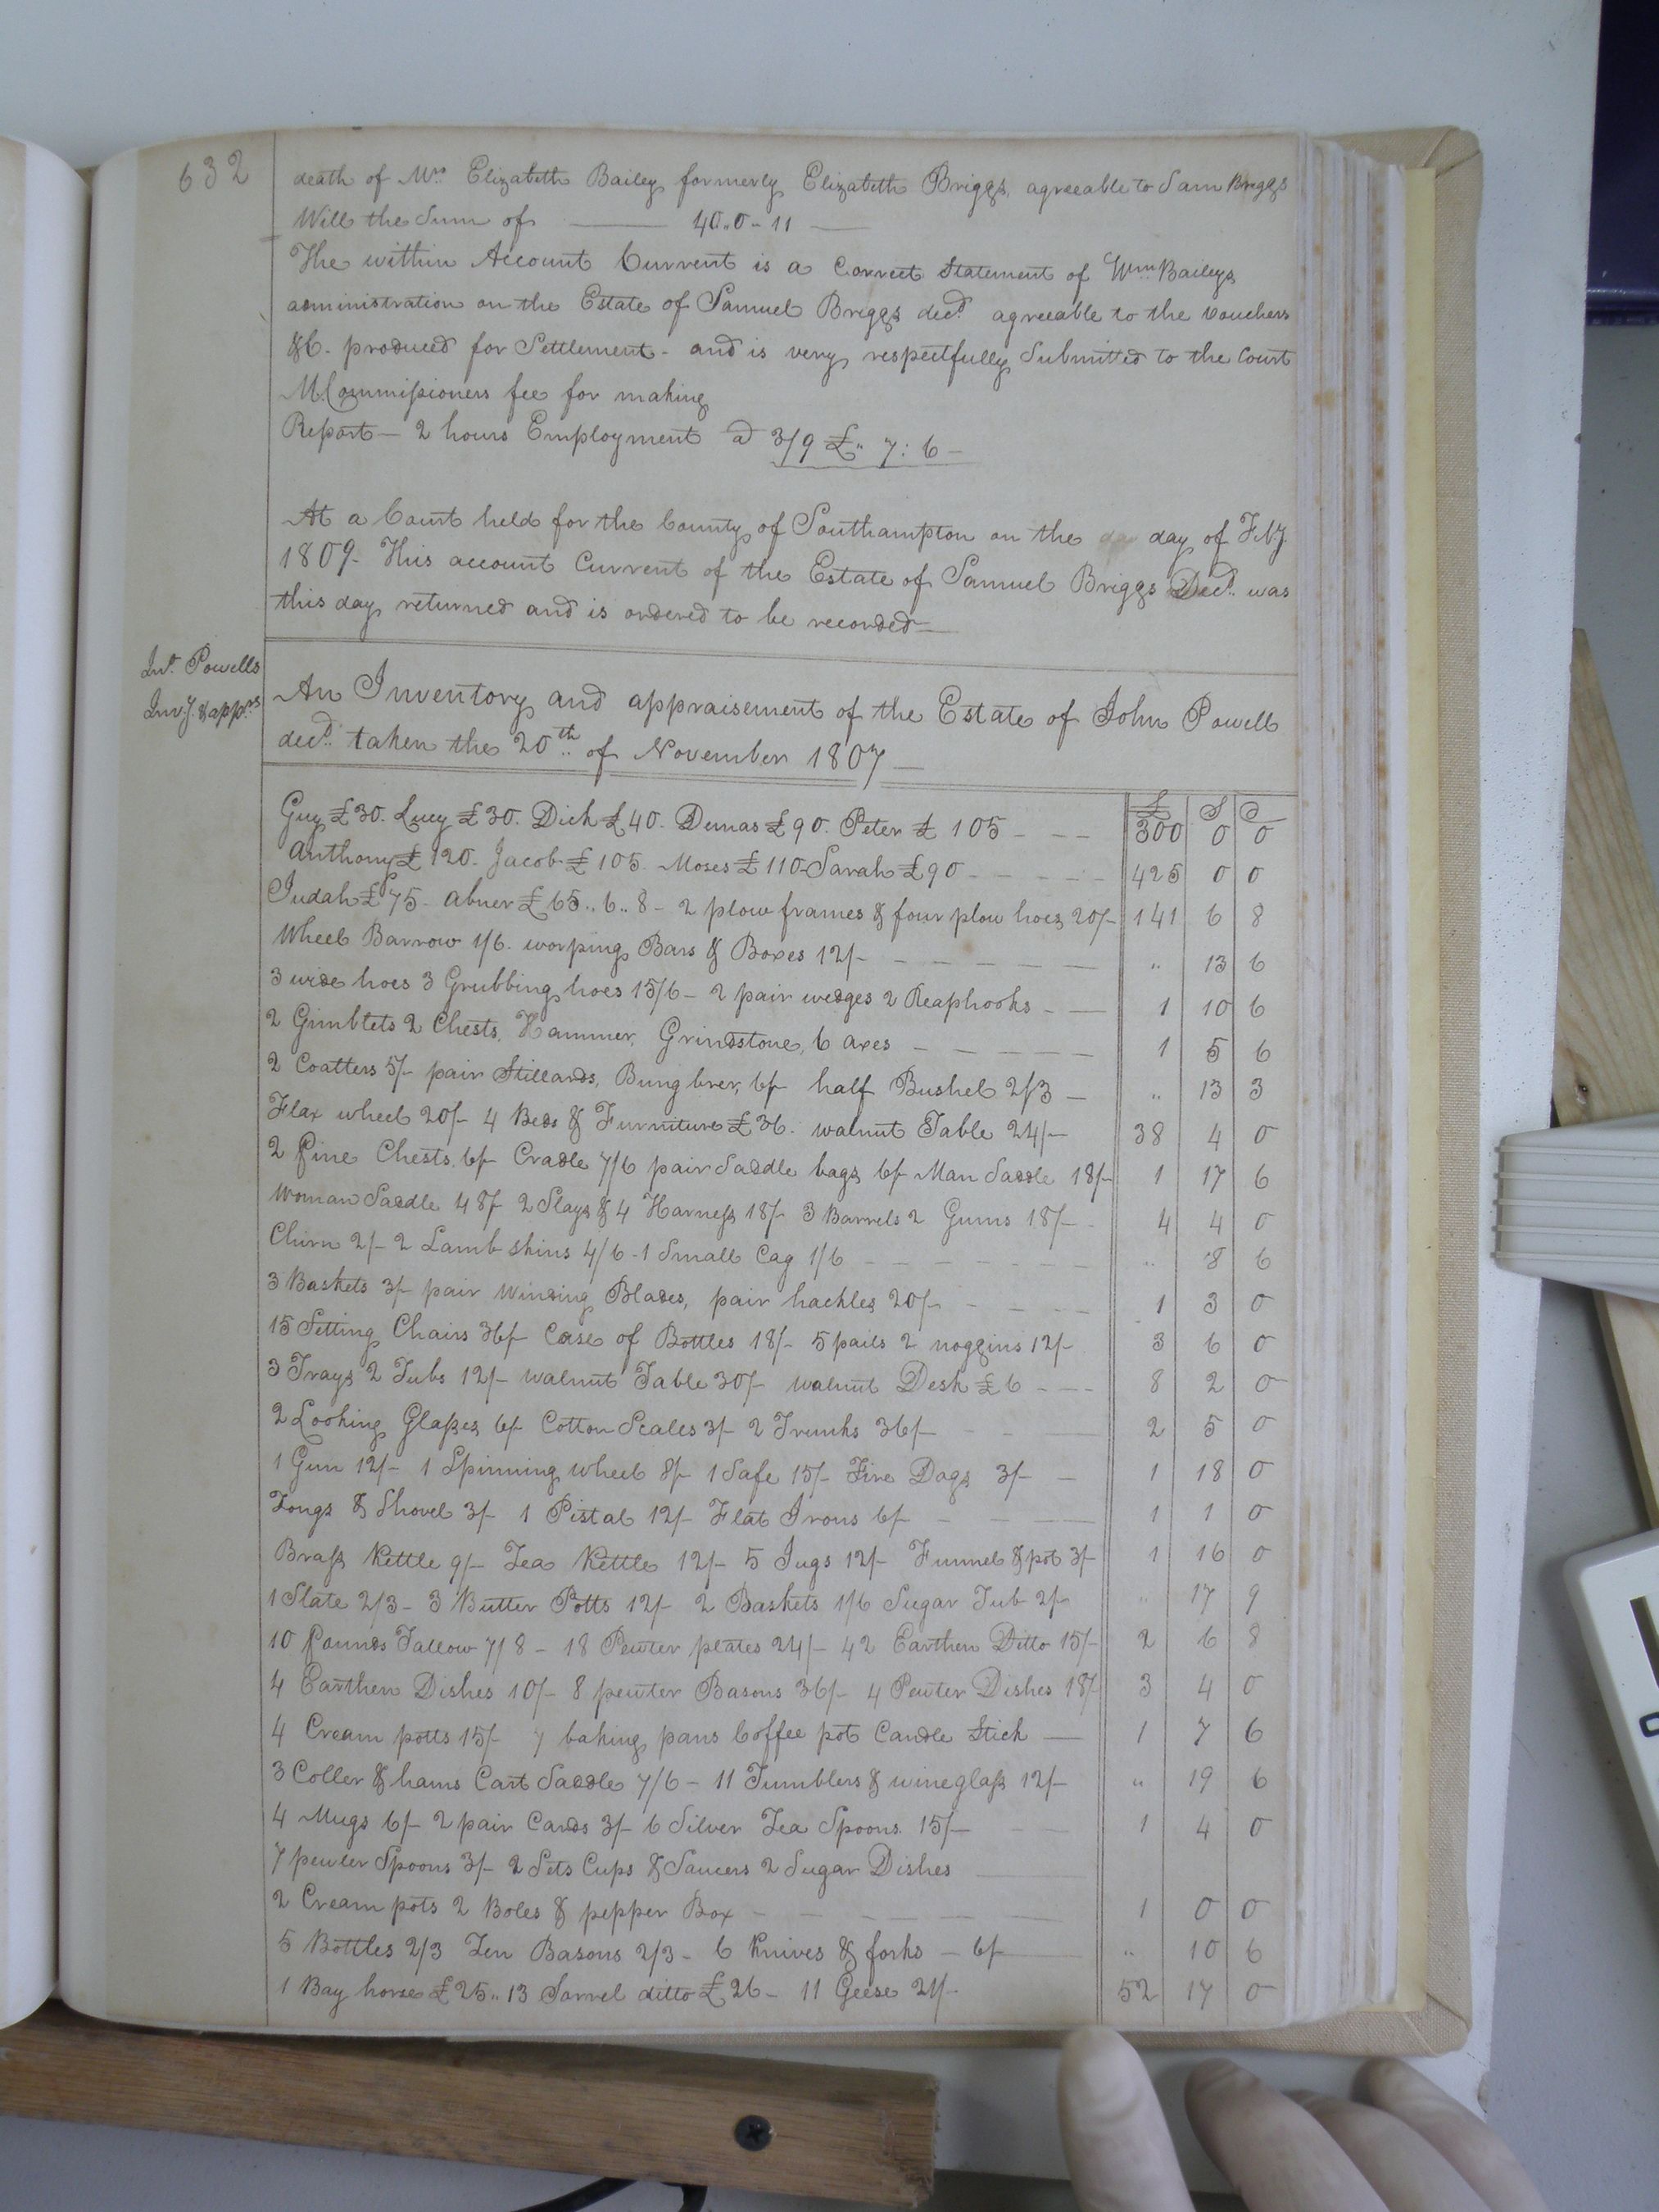 632
death of Mrs. Elizabeth Bailey formerly Elizabeth Briggs, agreeable to Sam Briggs
Will the Sum of —— 40..0..11 ——
The within Account Current is a Correct Statement of Wm Baileys
administration on the Estate of Samuel Briggs decd. agreeable to the vouchers
&C. produced for Settlement - and is very respectfully Submitted to the Court
M. Commissioners fee for making
Report — 2 hours Employment @ 3/9 £.. 7: 6 —
At a Court held for the County of Southampton on the day of
1809 - This account Current of the Estate of Samuel Briggs Decd. was
this day returned and is ordered to be recorded —
Jno. Powells
Invy. & apprs
An Inventory and appraisement of the Estate of John Powell
decd. taken the 20th.. of November 1807 —
£ S D
Guy £30. Lucy £30. Dick £40. Demas £90. Peter £ 105 - - - 300 0 0
Anthony £ 120. Jacob £ 105. Moses £ 110 - Sarah £90 - - - - - 425 0 0
Judah £ 75 - Abner £ 65.. 6.. 8 - 2 plow frames & four plow hoes 20/- 141 6 8
Wheel Barrow 1/6. worping Bars & Boxes 12/- - - - - - .. 13 6
3 wide hoes 3 Grubbing hoes 15/6 - 2 pair wedges 2 Reaphooks - - 1 10 6
2 Gimblets 2 Chests, Hammer, Grindstone, 6 axes - - - - - 1 5 6
2 Coatters 5/- pair Stillards, Bung brer, 6/- half Bushel 2/3 - .. 13 3
Flax wheel 20/- 4 Beds & Furniture £36. walnut Table 24/- 38 4 0
2 Pine Chests. 6/- Cradle 7/6 pair Saddle bags 6/- Man Saddle 18/- 1 17 6
Woman Saddle 48/- 2 Slays & 4 Harness 18/- 3 Barrels 2 Gums 18/- - 4 4 0
Churn 2/- 2 Lamb skins 4/6 - 1 Small Cag 1/6 - - - - - - .. 8 6
3 Baskets 3/- pair Winding Blades, pair hackles 20/- - - - - 1 3 0
15 Setting Chairs 36/- Case of Bottles 18/- 5 pails 2 noggins 12/- 3 6 0
3 Trays 2 Tubs 12/- walnut Table 30/- walnut Desk £6 - - - 8 2 0
2 Looking Glasses 6/- Cotton Scales 3/- 2 Trunks 36/- - - - 2 5 0
1 Gun 12/- 1 Spinning wheel 8/- 1 Safe 15/- Fire Dogs 3/- - 1 18 0
Tongs & Shovel 3/- 1 Pistal 12/- Flat Irons 6/- - - - 1 1 0
Brass Kettle 9/- Tea Kettle 12/- 5 Jugs 12/- Funnel & pot 3/- 1 16 0
1 Slate 2/3 - 3 Butter Potts 12/- 2 Baskets 1/6 Sugar Tub 2/- .. 17 9
10 Pounds Tallow 7/8 - 18 Pewter plates 24/- 42 Earthen Ditto 15/- 2 6 8
4 Earthen Dishes 10/- 8 pewter Basons 36/- 4 Pewter Dishes 18/- 3 4 0
4 Cream potts 15/- 7 baking pans Coffee pot Candle Stick — 1 7 6
3 Coller & hams Cart Saddle 7/6 - 11 Tumblers & wineglass 12/- .. 19 6
4 Mugs 6/- 2 pair Cards 3/- 6 Silver Tea Spoons. 15/- - - 1 4 0
7 pewter Spoons 3/- 2 Sets Cups & Saucers 2 Sugar Dishes ——
2 Cream pots 2 Boles & pepper Box - - - - - 1 0 0
5 Bottles 2/3 Ten Basons 2/3 - 6 Knives & forks - 6/- —— .. 10 6
1 Bay horse £25.. 13 Sorrel ditto £26 - 11 Geese 21/- 52 17 0